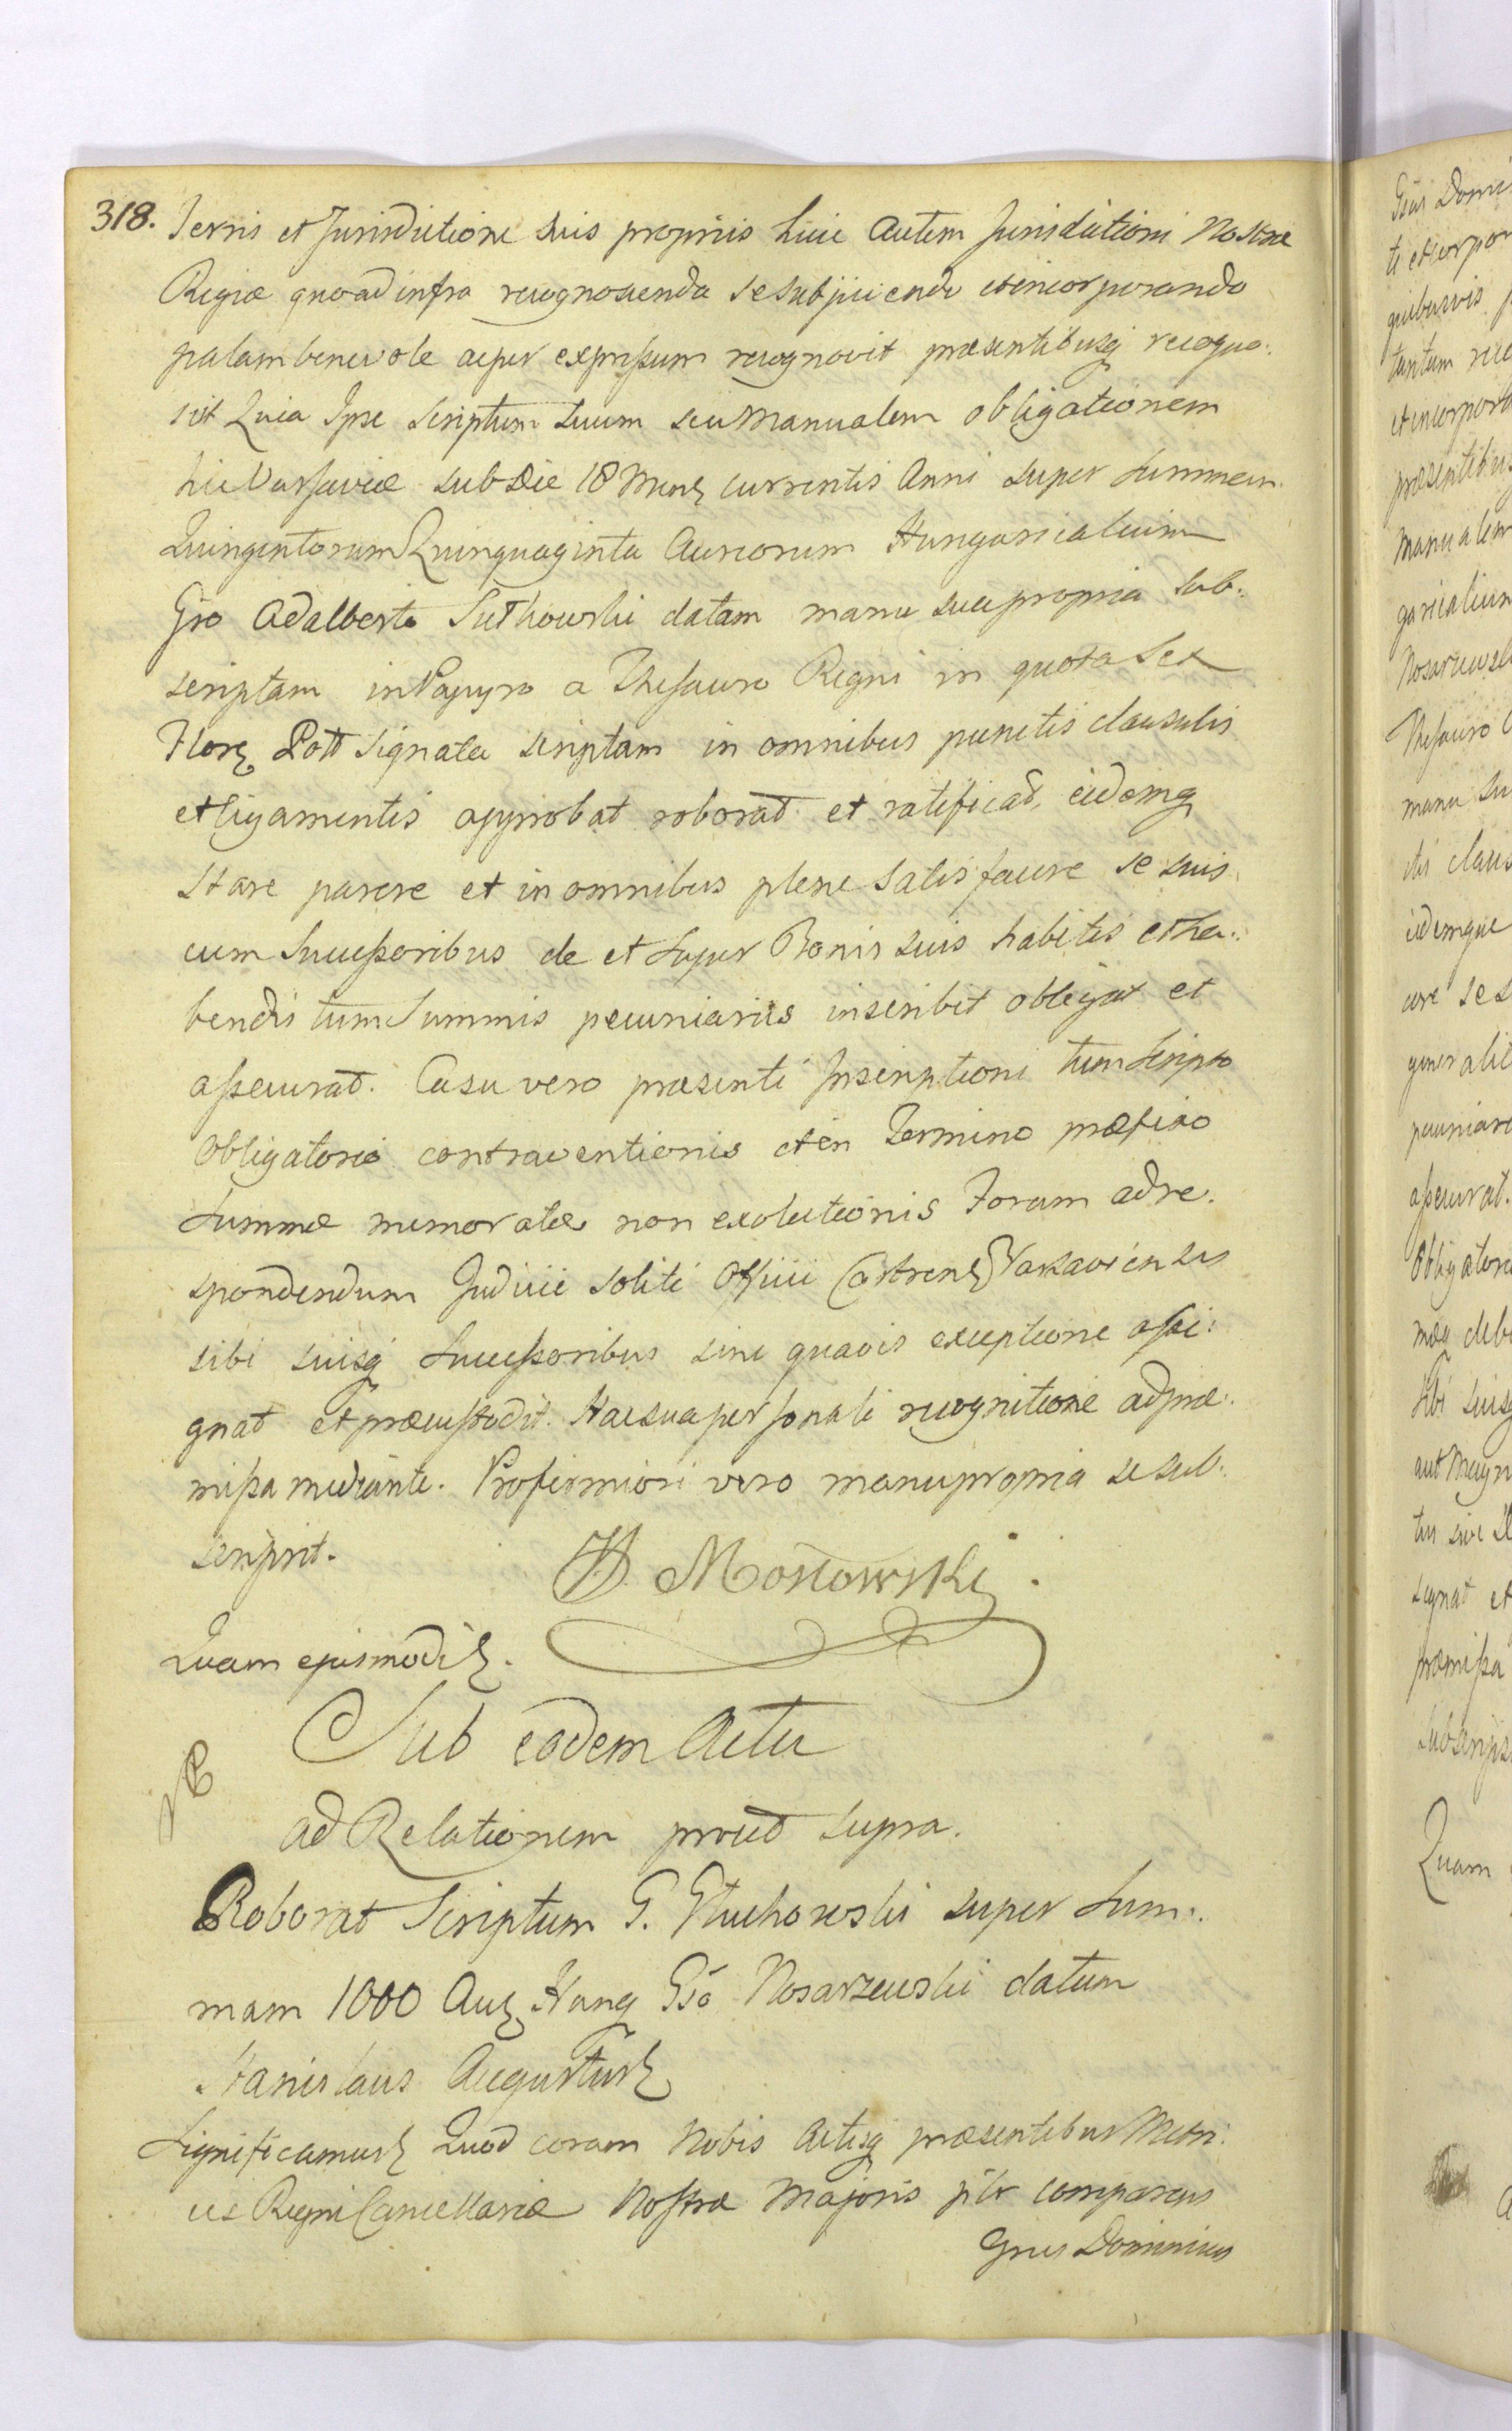 318. Terris et Jurisdictione suis propriis huic autem Jurisdictioni Nostræ
Regiæ quoad infra recognoscenda se subjiciendo et incorporando
palam benevole ac per expressum recognovit præsentibusq recogno:
scit Quia Ipse Scriptum suum seu Manualem obligationem
hic Varsaviæ sub Die 18 Mens currentis Anni super Summam
Quingentorum Quinquaginta Aureorum Hungaricalium
Gso Adalberto Sutkowski datam manu sua propria sub:
scriptam in Papyro a Thesauro Regni in quota Sex
Flor Poll signata scriptam in omnibus punctis clausulis
et ligamentis approbat roborat et ratificat, eidemq
stare parere et in omnibus plene satisfacere se suis
cum Successoribus de et super Bonis suis habitis et ha:
bendis tum Summis pecuniariis inscribit obligat et
assecurat. Casu vero præsenti Inscriptioni tum Scripto
Obligatorio contraventionis et in Termino præfixo
Summæ memoratæ non exolutionis Forum ad re:
spondendum Judicii soliti Officii Castrens Varsaviensis
sibi suisq Successoribus sine quavis exceptione assi:
gnat et præcustodit. Hac sua personali recognitione ad præ:
missa mediante. Pro firmiori vero manu propria se sub:
scripsit.
Mostowski.
Quam ejusmodi
Sub eodem Actu
ad Relationem prout supra.
Roborat Scriptum G. Głuchowski super Sum:
mam 1000 Aur Hung Gso Nosarzewski datum
Stanislaus Augustus
Significamus Quod coram Nobis Actisq præsentibus Metri:
ces Regni Cancellariæ Nostræ Majoris pltr comparens
Gnus Dominicus
Gsus Domi
quibusvis
tantum
et incorpora
præsentibus
Manualem
garicalium
Nosarzewsk
Thesauro
manu su
tis claus
eidemque
cere se s
generalit
pecuniari
assecurat.
Obligatori
sibi suisq
aut Magn
signat et
præmissa
subscrips
Quam